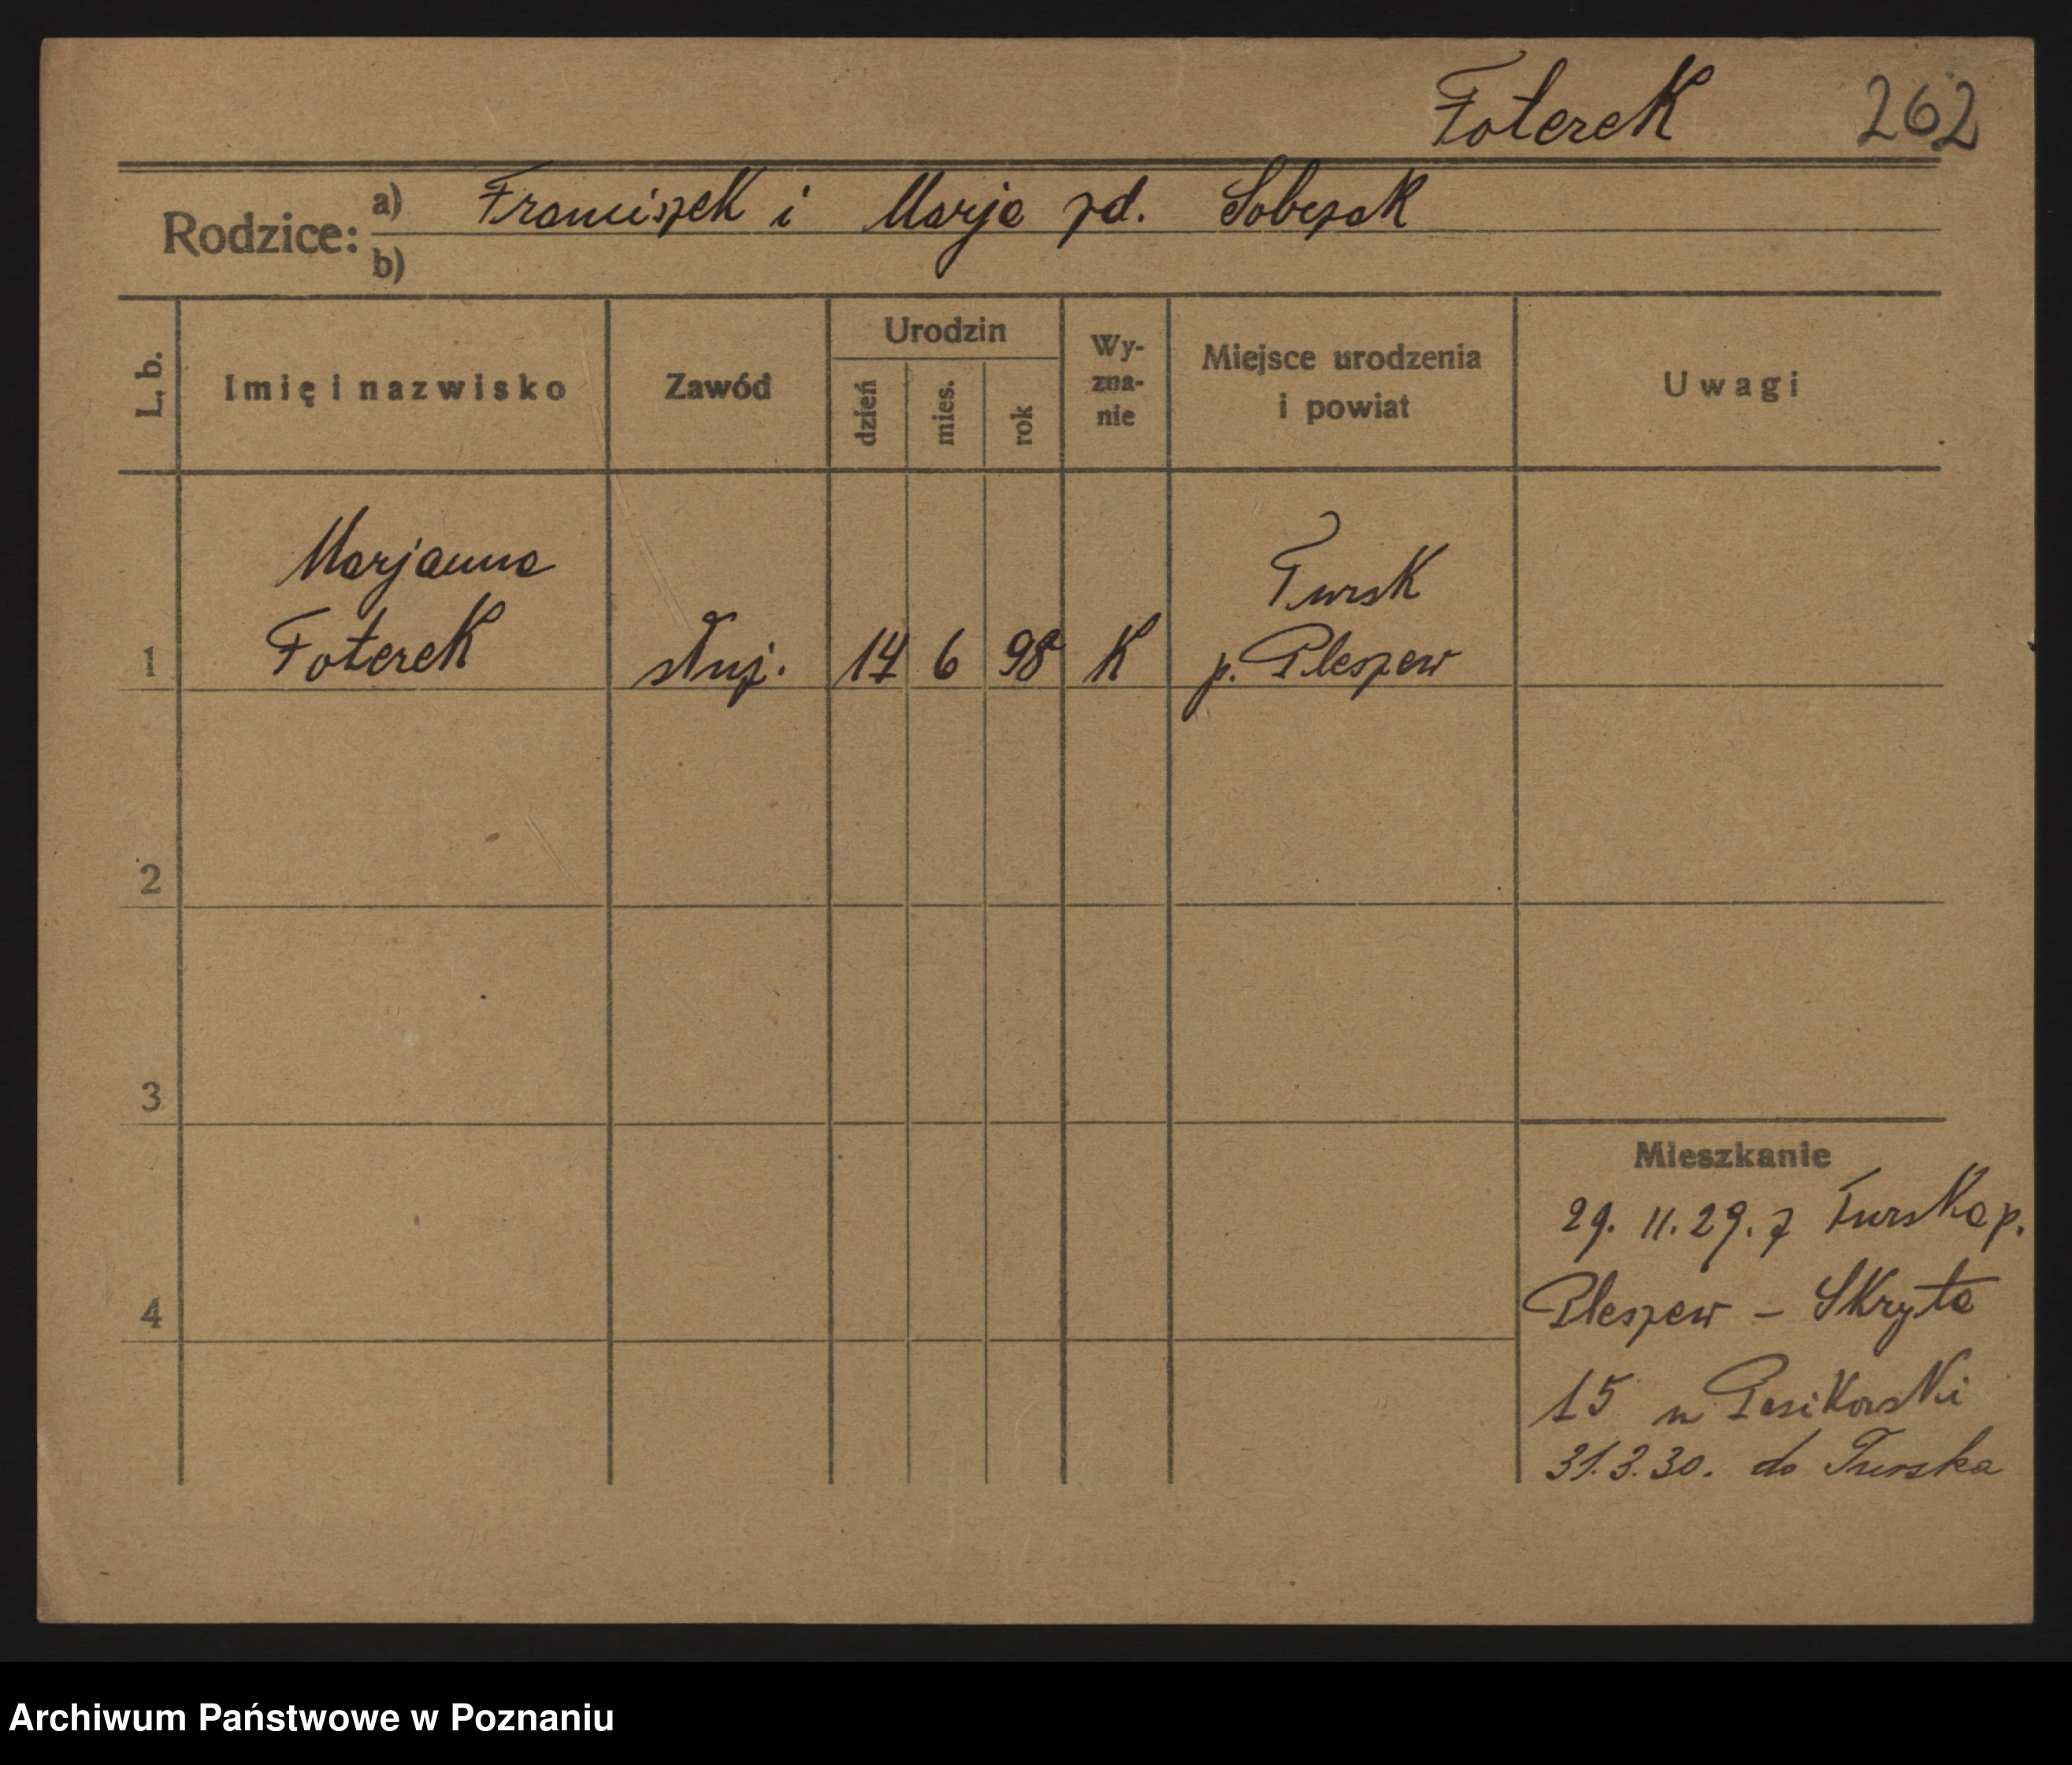 Foterek 262
Rodzice: a) Franciszek i Marja zd. Sobczak
b)
L. b. Imię i nazwisko Zawód Urodzin dzień mies. rok Wy-zna-nie Miejsce urodzenia i powiat Uwagi
Marjanna
Foterek
1 służ. 14 6 98 K
Tursk
p. Pleszew
2
3
4
Mieszkanie
29. 11. 29. z Turska p.
Pleszew - Skryta
15 u Pasikorski
31.3.30. do Turska
Archiwum Państwowe w Poznaniu